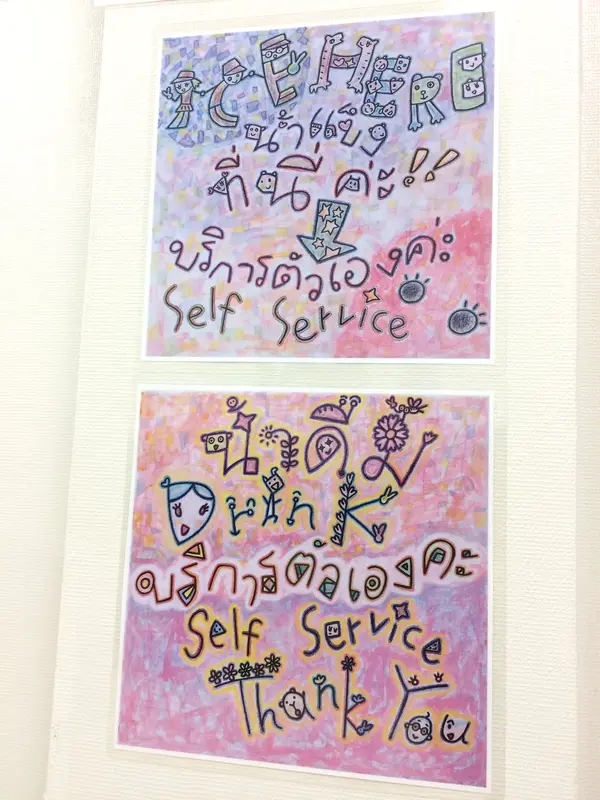 ICE HERE
น้ำแข็ง
ที่นี่ค่ะ!!
บริการตัวเองค่ะ
Self Service
น้ำดื่ม
Drink
บริการตัวเองค่ะ
Self Service
Thank You